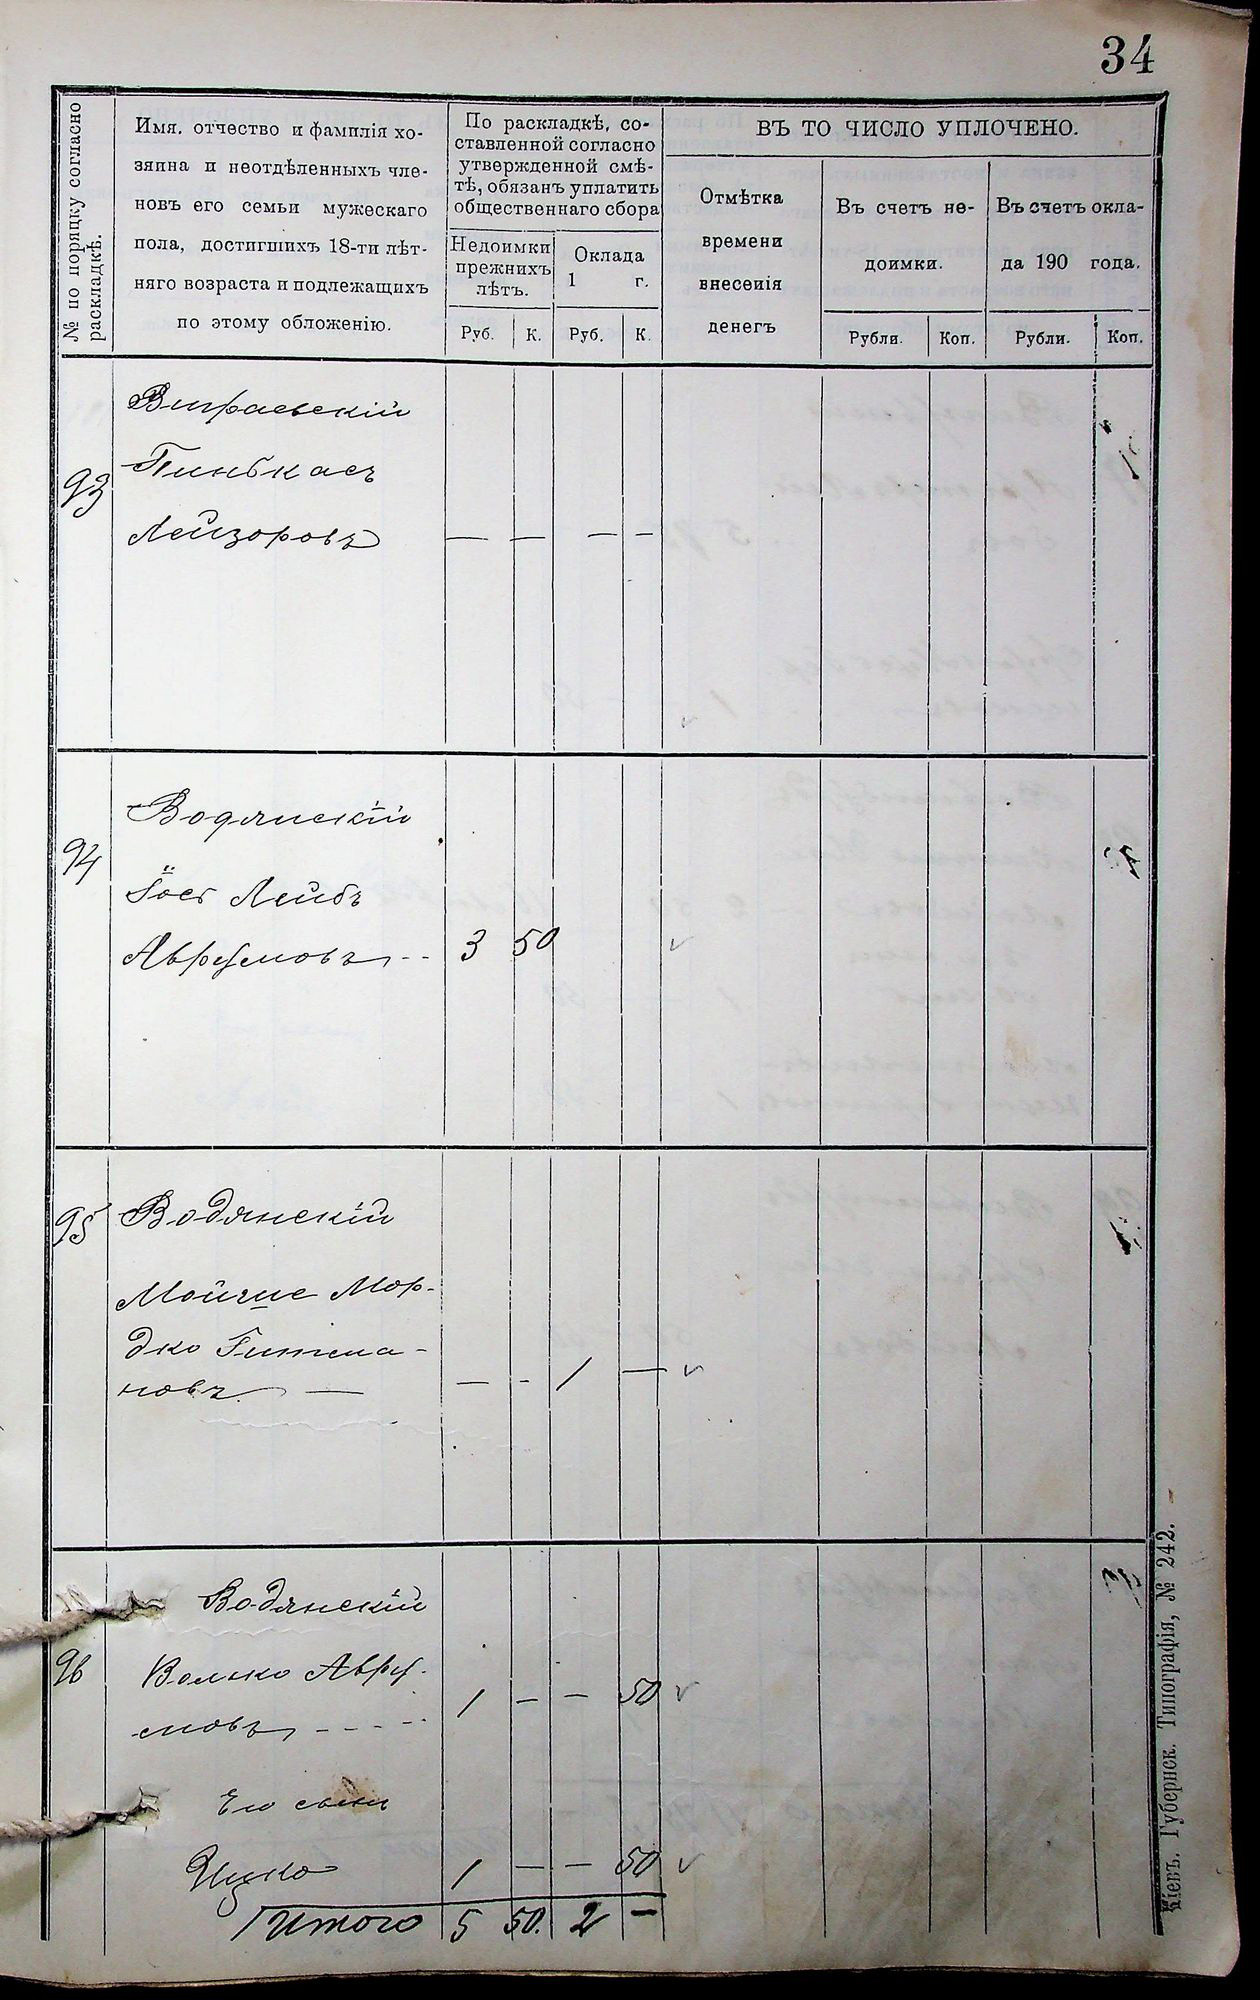 34
№ по порядку согласно
раскладкѣ.
Имя, отчество и фамилія хо-
зяина и неотдѣленныхъ чле-
новъ его семьи мужескаго
пола, достигшихъ 18-ти лѣт-
няго возраста и подлежащихъ
по этому обложенію.
По раскладкѣ, со-
ставленной согласно
утвержденной смѣ-
тѣ, обязанъ уплатить
общественнаго сбора
Недоимки
прежнихъ
лѣтъ.
Оклада
1 г.
Руб. К. Руб. К.
ВЪ ТО ЧИСЛО УПЛОЧЕНО.
Отмѣтка
времени
внесенія
денегъ
Въ счетъ не-
доимки.
Въ счетъ окла-
да 190 года.
Рубли. Коп. Рубли. Коп.
93
Пинькасъ
Лейзоровъ — — — —
94
Водянскій
Іось Лейбъ
Аврумовъ -- 3 50
95 Водянскій
Мойше Мор-
дко Гитема-
новъ — — - 1 —
Водянскій
96 Волько Авру-
мовъ - - - - 1 — — 50
Его сынъ
Ицко 1 — — 50
Итого 5 50. 2 —
Кіевъ. Губернск. Типографія, № 242.